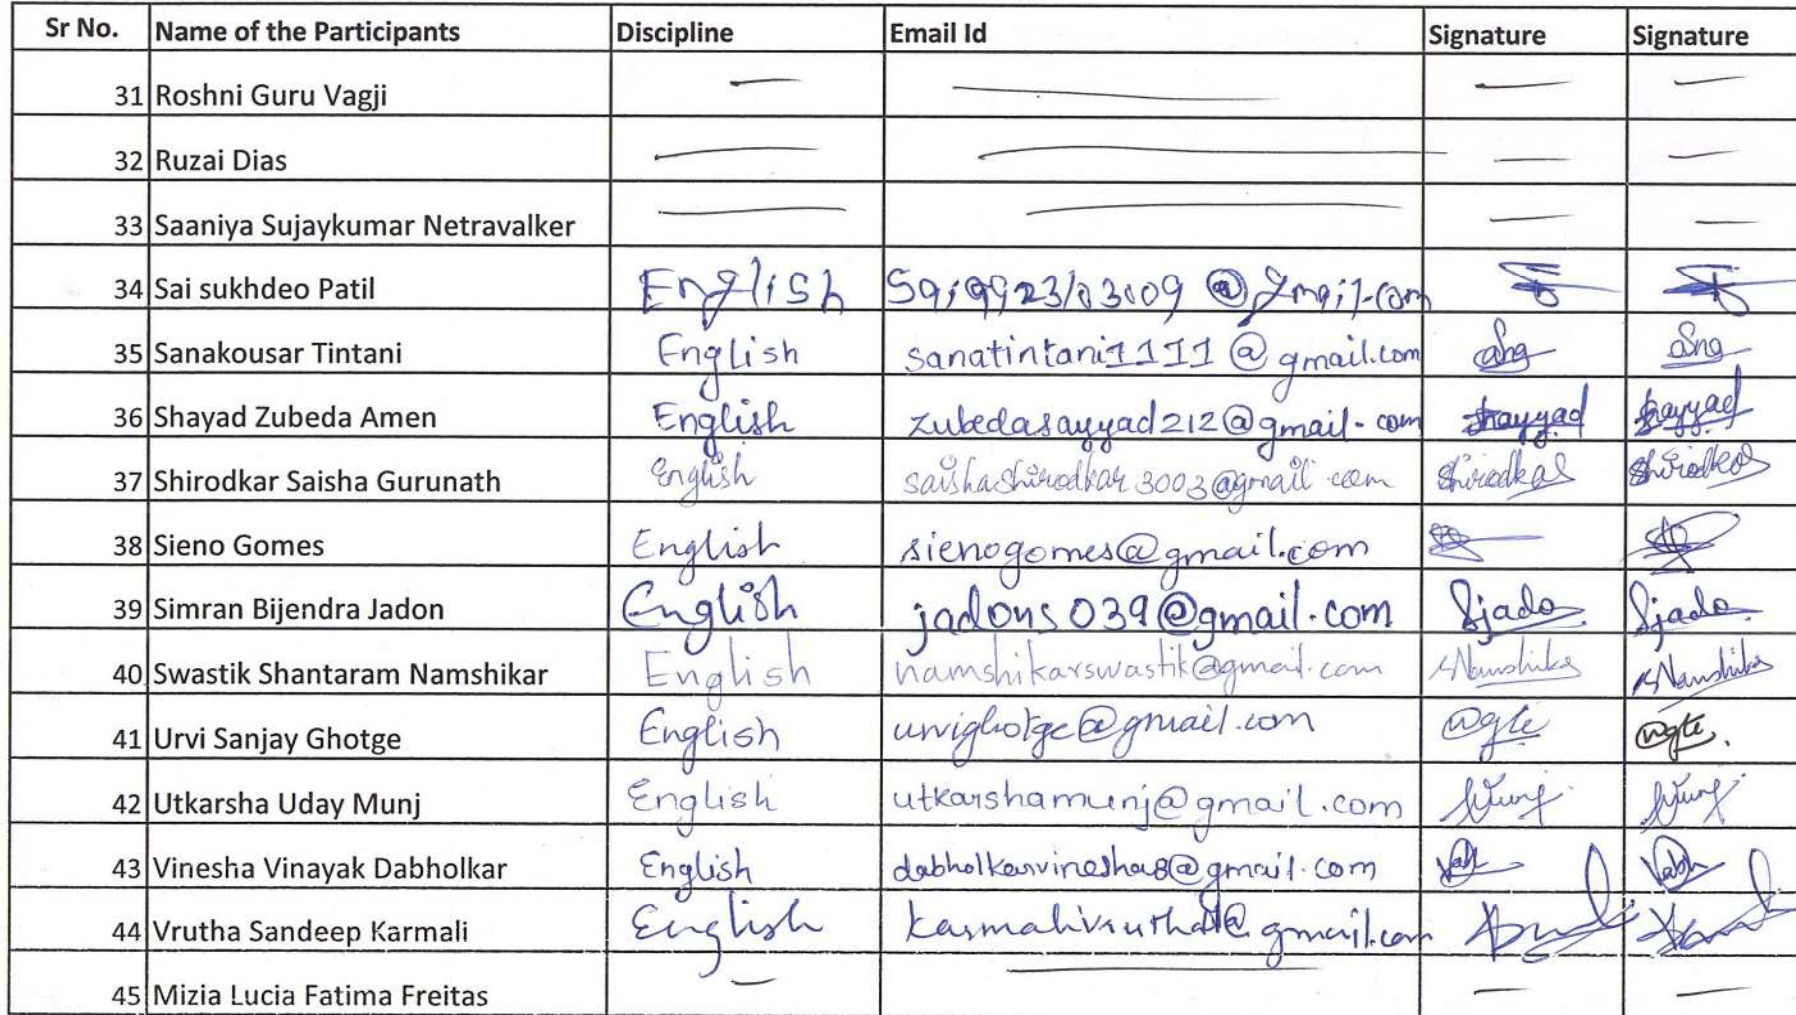 Sr No. Name of the Participants Discipline Email Id Signature Signature
31 Roshni Guru Vagji — — — —
32 Ruzai Dias — — — —
33 Saaniya Sujaykumar Netravalker — — — —
34 Sai sukhdeo Patil English @gmail.com
35 Sanakousar Tintani English sanatintani1111@gmail.com
36 Shayad Zubeda Amen English zubedasayyad212@gmail.com Shayyad Shayyad
37 Shirodkar Saisha Gurunath English saishashirodkar3003@gmail.com Shirodkar Shirodkar
38 Sieno Gomes English sienogomes@gmail.com
39 Simran Bijendra Jadon English jadons039@gmail.com Sjado Sjado
40 Swastik Shantaram Namshikar English namshikarswastik@gmail.com
41 Urvi Sanjay Ghotge English urvighotge@gmail.com
42 Utkarsha Uday Munj English utkarshamunj@gmail.com
43 Vinesha Vinayak Dabholkar English dabholkarvinesha8@gmail.com
44 Vrutha Sandeep Karmali English @gmail.com
45 Mizia Lucia Fatima Freitas — — — —